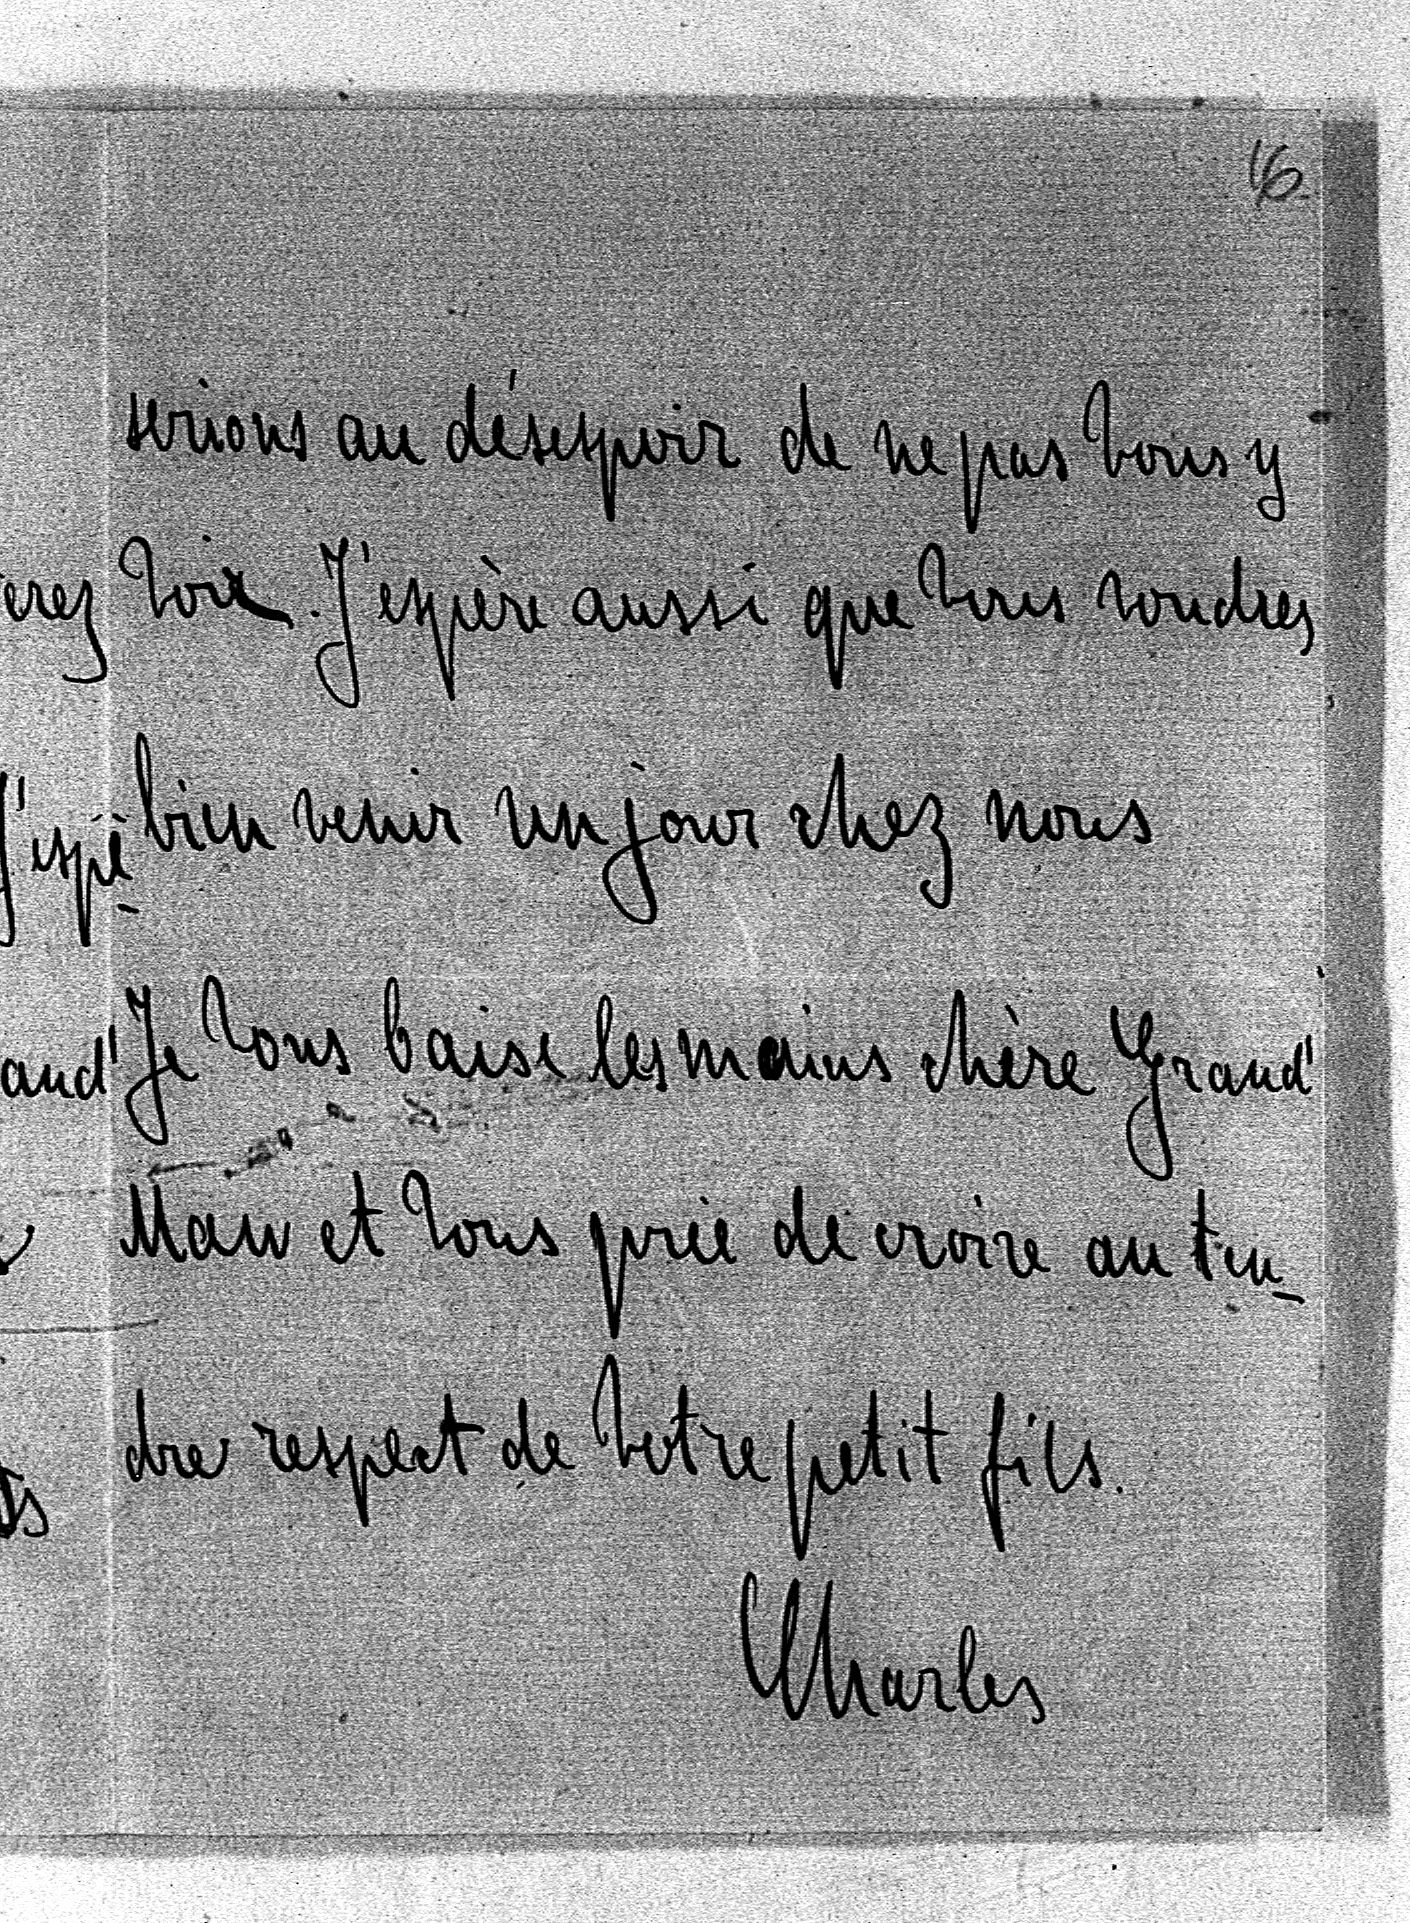 16
serions au désespoir de ne pas Vous y
voir. J'espère aussi que Vous voudrez
bien venir un jour chez nous
Je Vous baise les mains chère Grand'
Maman et Vous prie de croire au ten-
dre respect de Votre petit fils.
Charles
erez
J'espè-
and'
ts